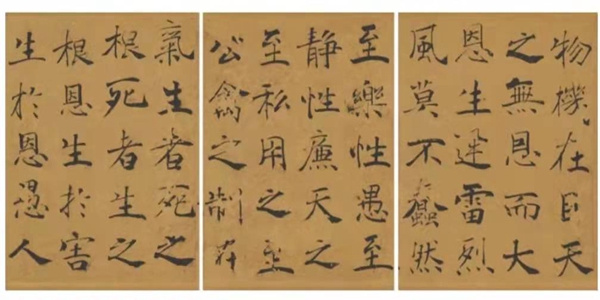 物機在目天
之無恩而大
恩生迅雷烈
風莫不蠢然
至樂性愚至
静性廉天之
至私用之至
公禽之制在
氣生者死之
根死者生之
根恩生於害
生於恩愚人